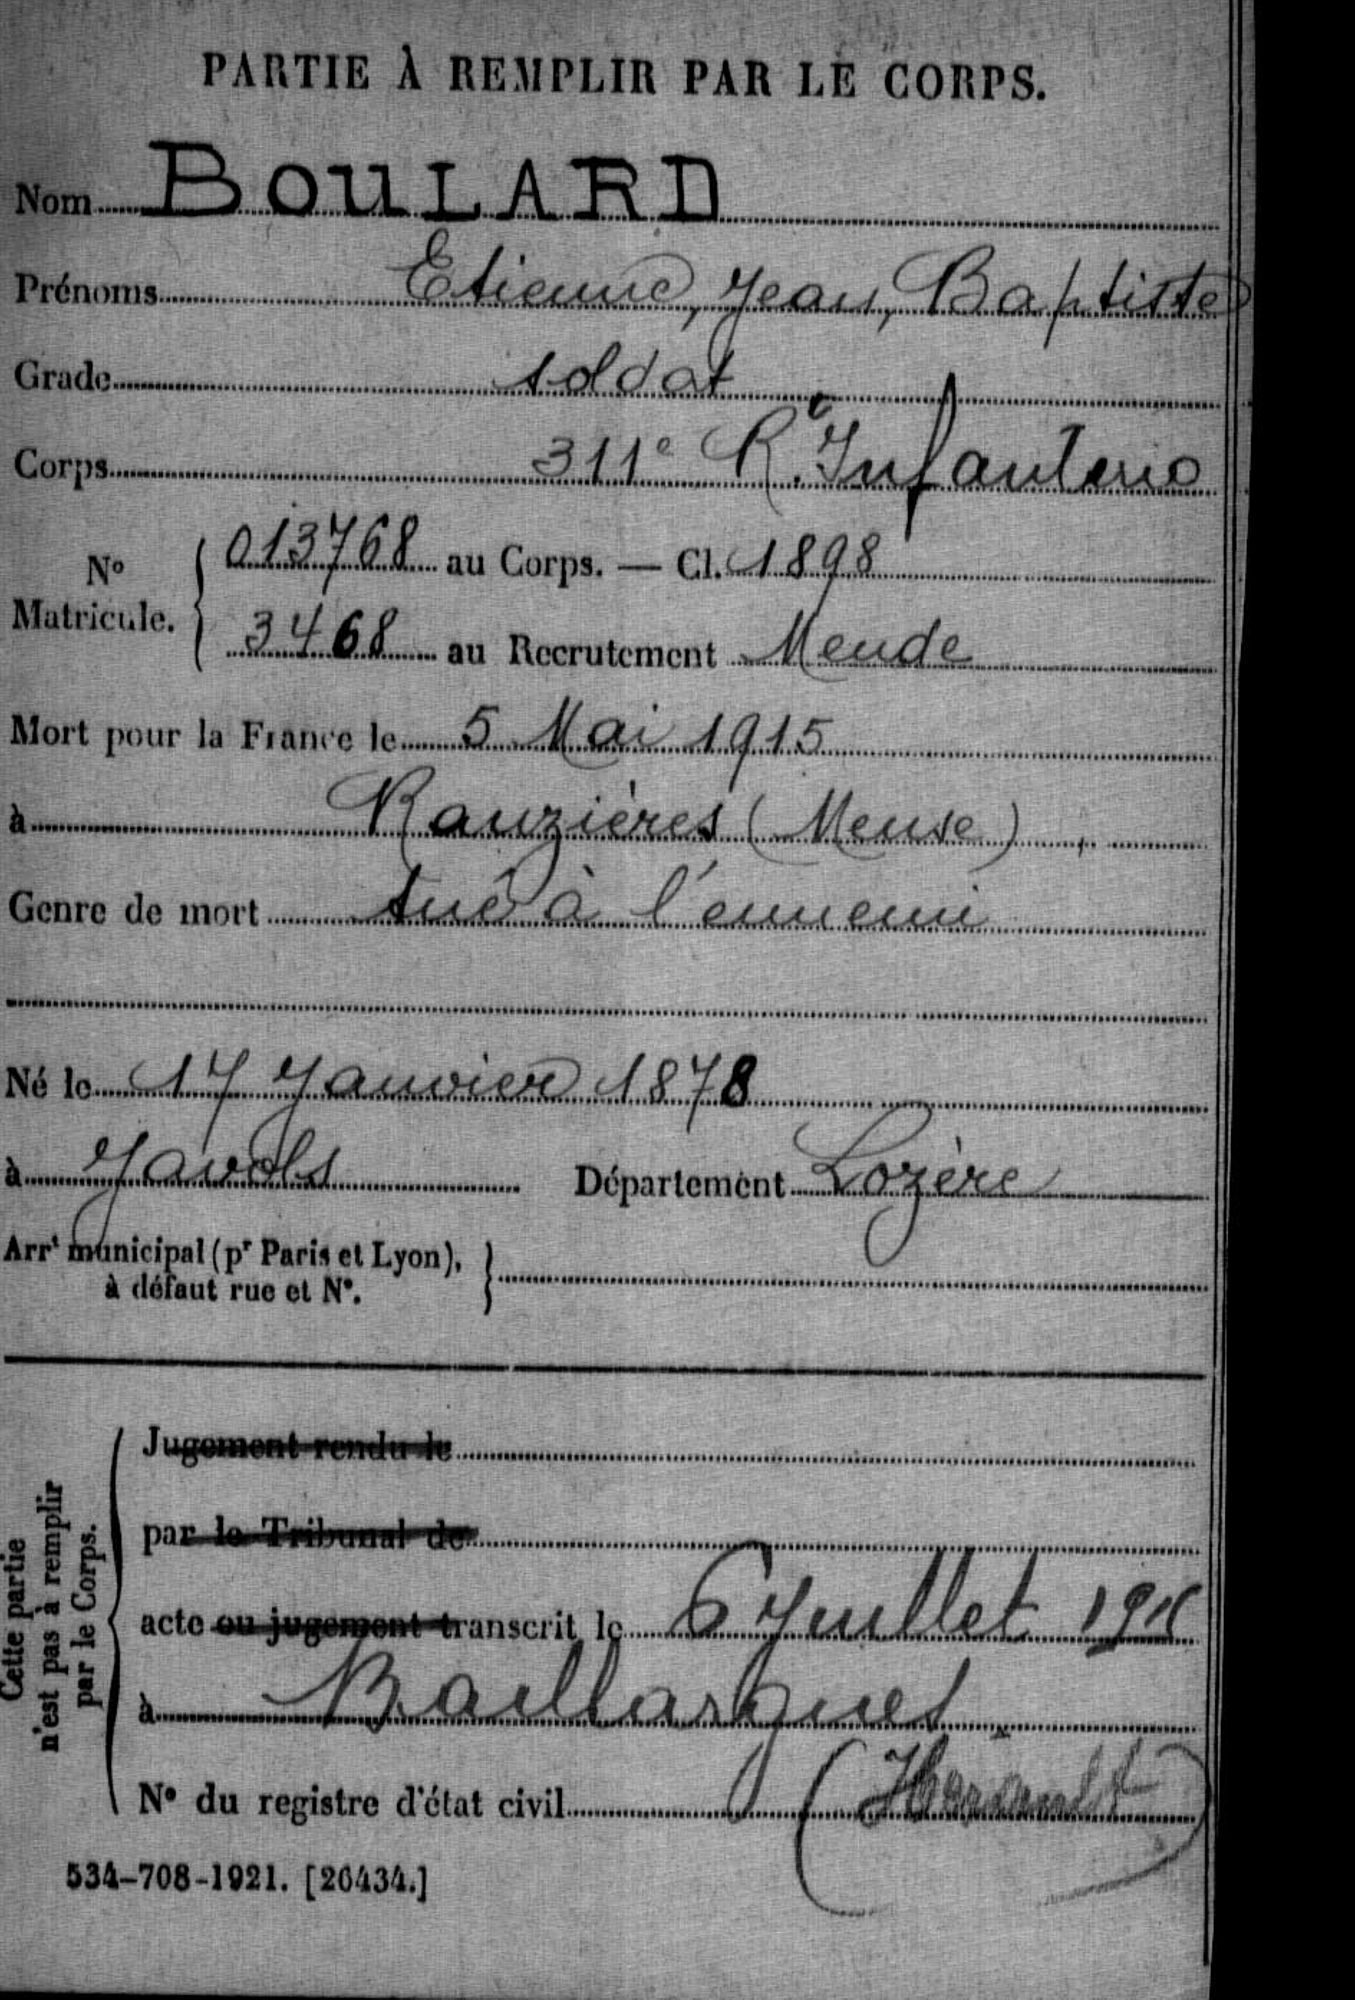 PARTIE À REMPLIR PAR LE CORPS.
Nom BOULARD
Prénoms Etienne, Jean, Baptiste
Grade soldat
Corps 311e Rt Infanterie
No Matricule. { 013768 au Corps. — Cl. 1898
3468 au Recrutement Mende
Mort pour la France le 5 Mai 1915
à Rauzières (Meuse)
Genre de mort tué à l'ennemi
Né le 17 Janvier 1878
à Javols Département Lozère
Arrt municipal (pr Paris et Lyon), }
à défaut rue et N°.
Cette partie
n'est pas à remplir
par le Corps.
Jugement rendu le
par le Tribunal de
acte ou jugement transcrit le 6 Juillet
à Baillargues
N° du registre d'état civil (Hérault)
534-708-1921. [26434.]